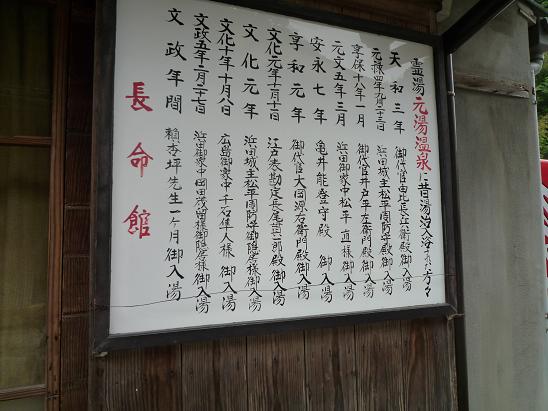 霊湯元湯温泉に昔湯治入浴された方々
天和三年 御代官由比長兵衛殿御入湯
元禄四年九月二十三日 浜田城主松平周防守殿御入湯
享保十八年一月 御代官井戸平左衛門殿御入湯
元文五年三月 浜田御家中松平直様御入湯
安永七年 亀井能登守殿御入湯
享和元年 御代官大岡源右衛門殿御入湯
文化元年十月十二日 江戸表勘定長尾貢一郎殿御入湯
文化元年 浜田城主松平周防守御隠居様御入湯
文化十年十月八日 広島御家中千石隼人様御入湯
文政五年二月二十七日 浜田御家中岡田茂留様御隠居様御入湯
文政年間 頼杏坪先生一ヶ月御入湯
長命館